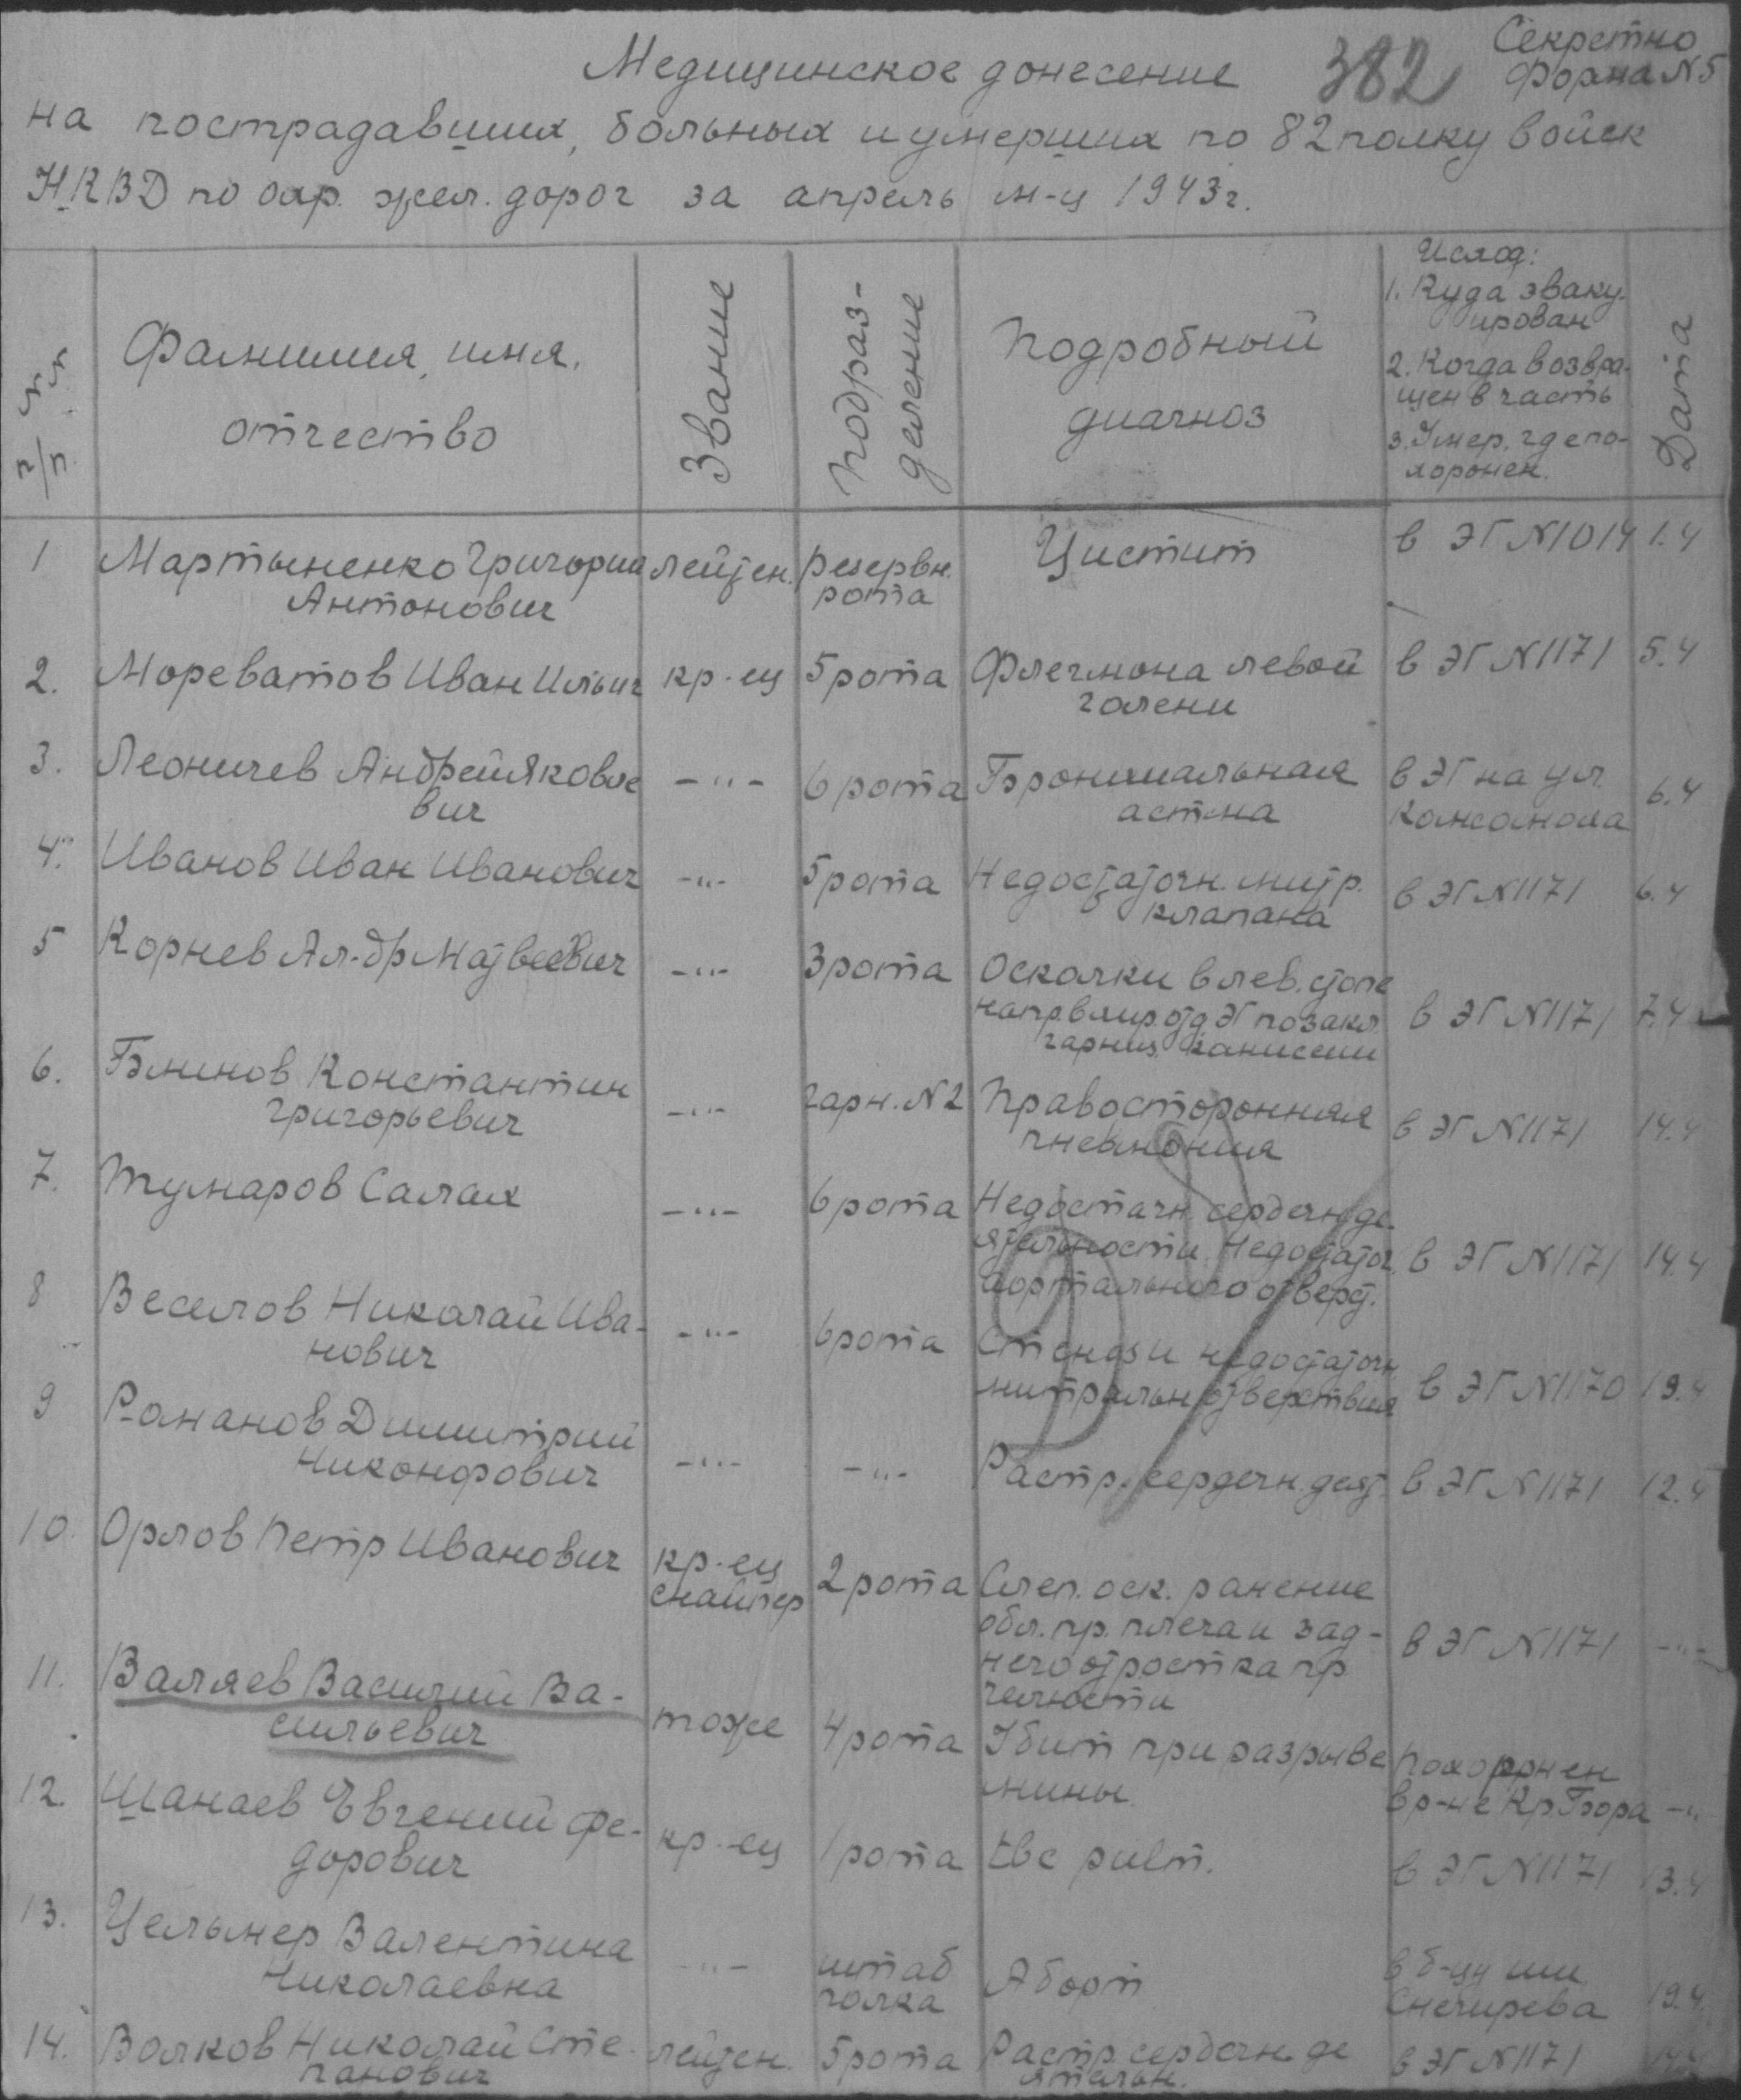 Секретно
Форма N5
382
Медицинское донесение
на пострадавших, больных и умерших по 82 полку войск
НКВД по охр. жел. дорог за апрель м-ц 1943г.
NN п/п
Фамилия, имя, отчество
Звание
Подразделение
Подробный диагноз
Исход:
1. Куда эваку-
ирован
2. Когда возвра-
щен в часть
3. Умер, где по-
хоронен.
Дата
1 Мартыненко Григорий лейтен. резервн. Цистит в ЭГ N1014 1.4
Антонович рота
2. Мореватов Иван Ильич кр-ец 5 рота Флегмона левой в ЭГ N1171 5.4
голени
3. Леоничев Андрей Яковле -"- 6 рота Бронхиальная в ЭГ на ул. 6.4
вич астма Комсомола
4. Иванов Иван Иванович -"- 5 рота Недостаточн. митр. в ЭГ N1171 6.4
клапана
5 Корнев Ал-др Матвеевич -"- 3 рота Осколки в лев. стопе
напр. в хир. отд. ЭГ по закл. в ЭГ N1171 7.4
гарниз. комиссии
6. Блинов Константин -"- гарн. N2 Правосторонняя в ЭГ N1171 14.4
Григорьевич пневмония
7. Тумаров Салах -"- 6 рота Недостачн. сердечн. де-
ятельности. Недостаточ. в ЭГ N1171 14.4
аортального отверст.
8 Веселов Николай Ива- -"- 6 рота Стеноз и недостаточн
нович митральн. отверствия в ЭГ N1170 19.4
9 Романов Димитрий -"- -"- Растр. сердечн. деят. в ЭГ N1171 12.4
Никонорович
10. Орлов Петр Иванович кр-ец 2 рота Слеп. оск. ранение
снайпер обл. пр. плеча и зад- в ЭГ N1171 -"-
него отростка пр.
челюсти
11. Валяев Василий Ва- тоже 4 рота Убит при разрыве Похоронен
сильевич мины. в р-не Кр. Бора -"-
12. Шанаев Евгений Фе- кр-ец 1 рота tbc pulm. в ЭГ N1171 13.4
дорович
13. Цельмер Валентина -"- штаб Аборт в б-цу им.
Николаевна полка Снегирева 19.4
14. Волков Николай Сте- лейтен. 5 рота Растр. сердечн. де в ЭГ N1171
панович ятельн.